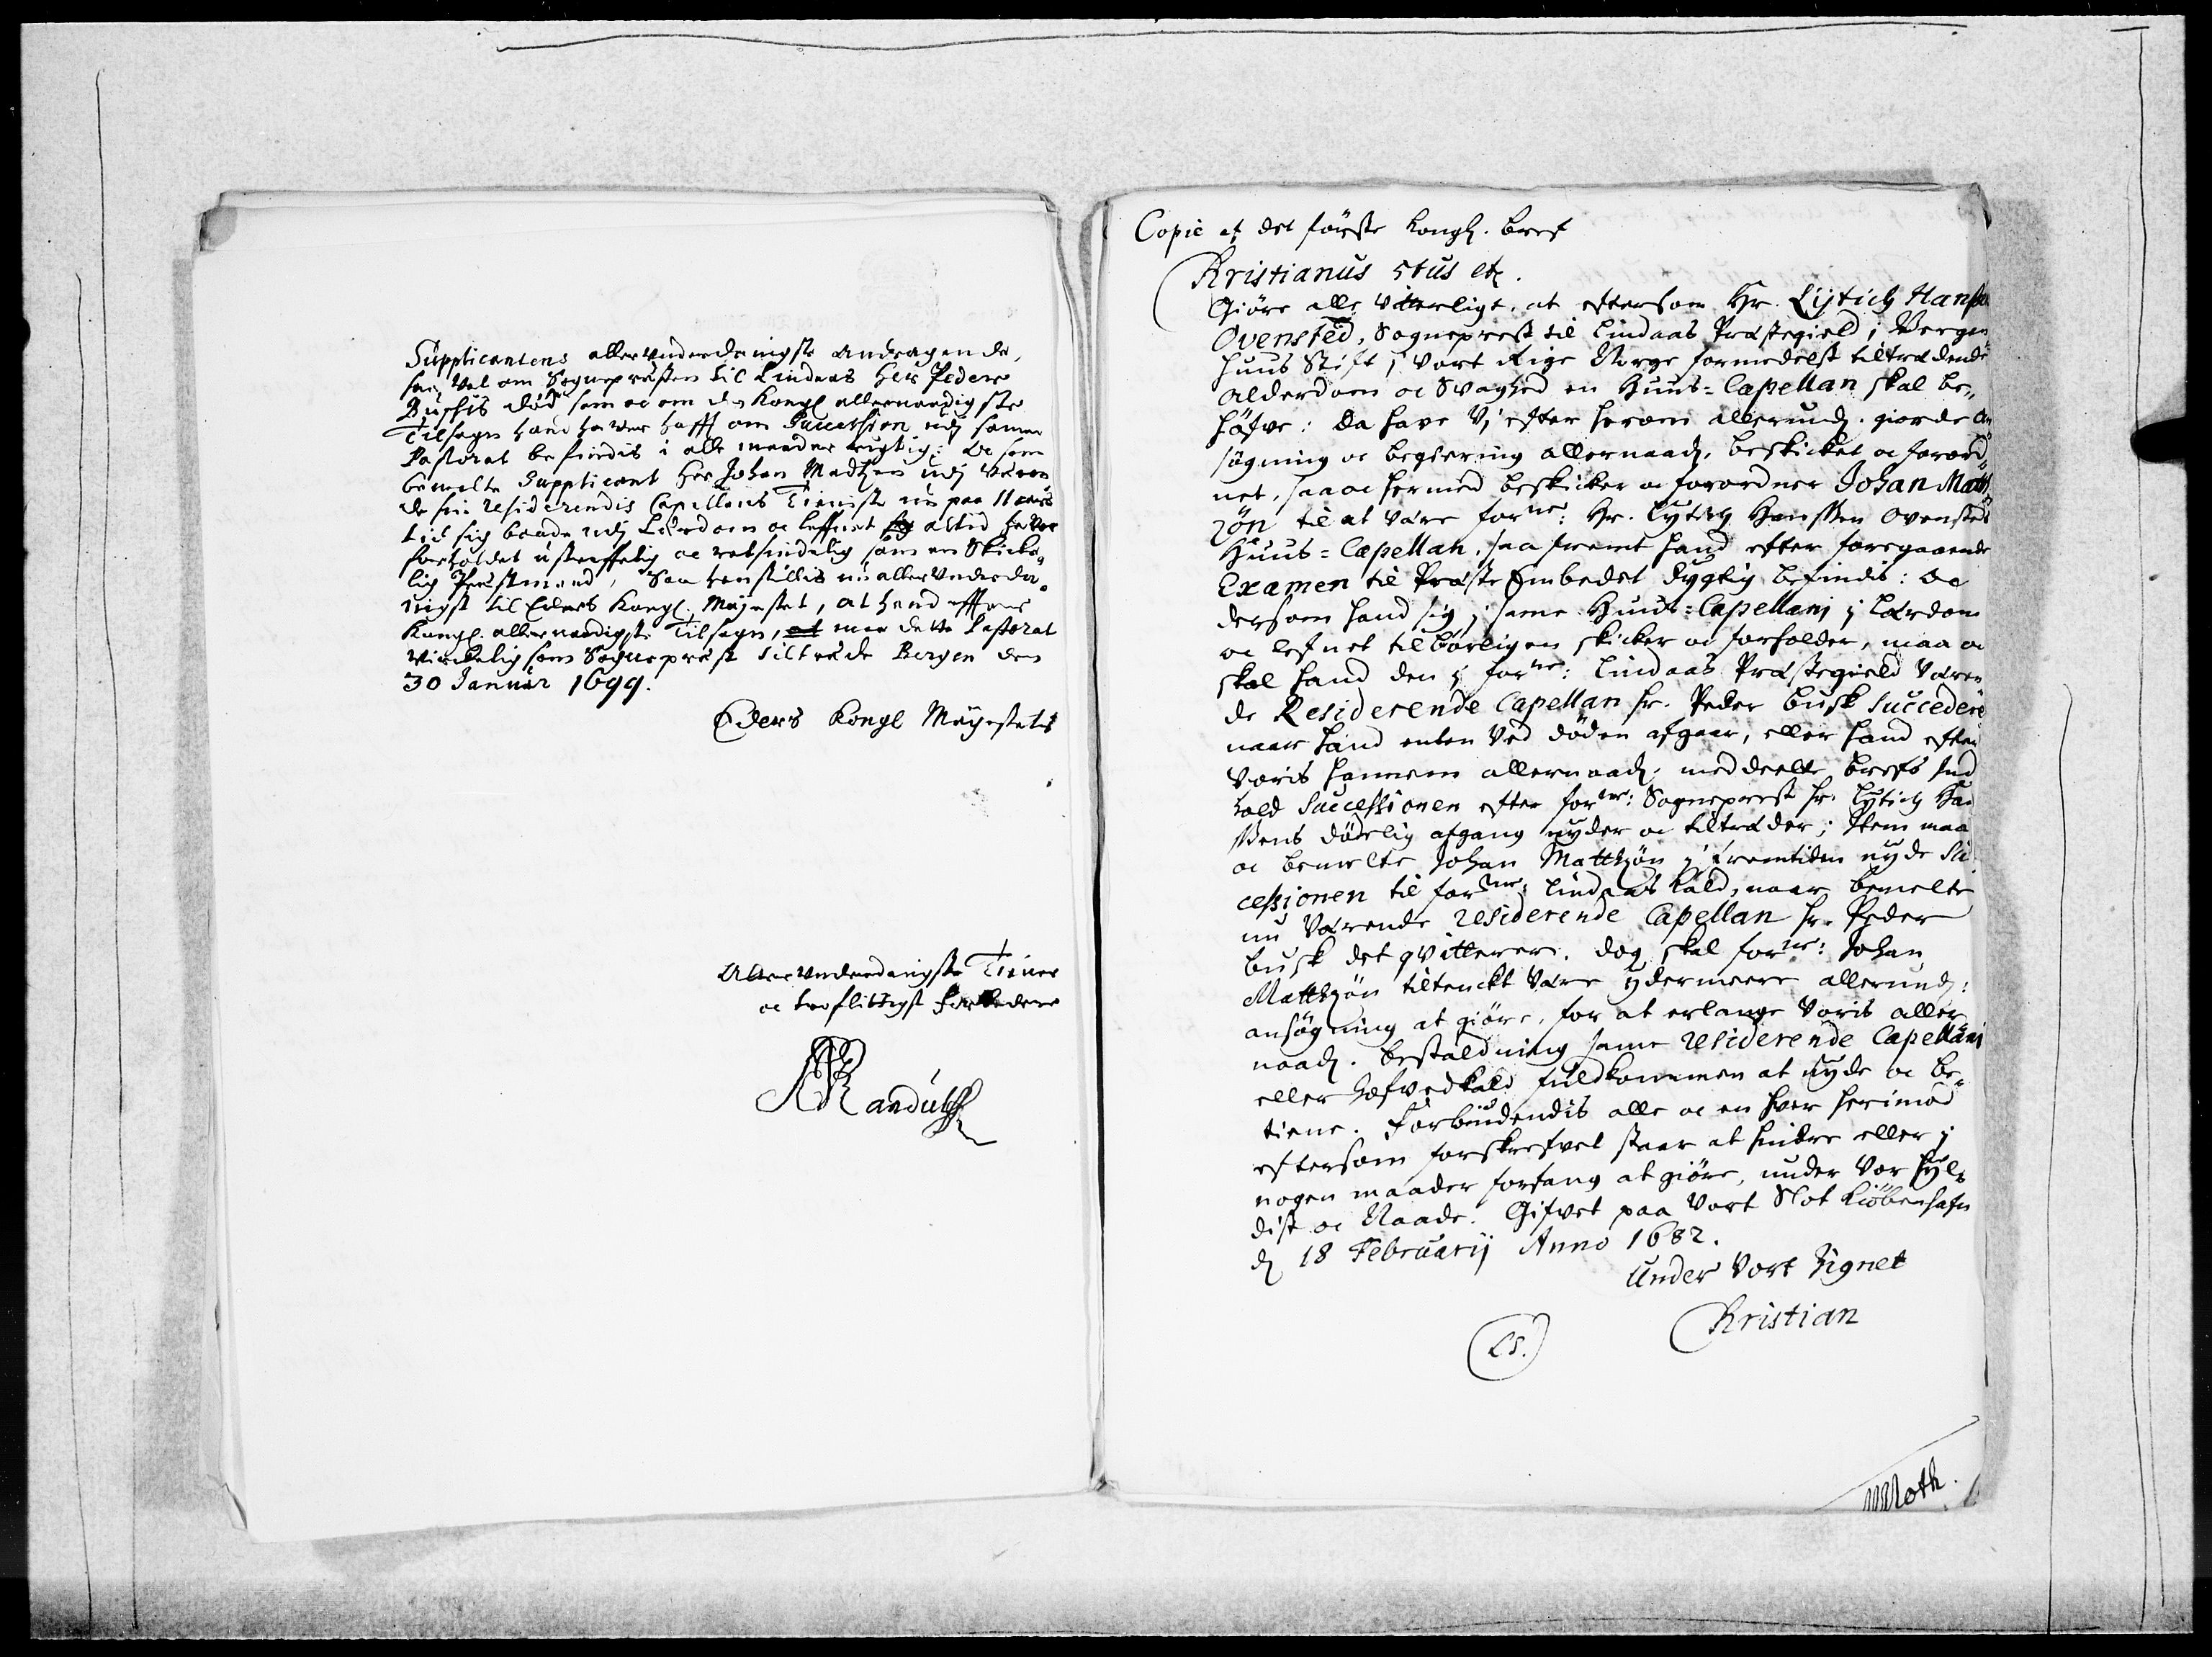 Supplicantens allerunderdanigste andragende,
saa vel om Sognepræsten til Lindaas Her Peders
Buschis død som oc om des Kongl allernaadigste
Tilsagn hand haver hafft om Succession udj samme
Pastorat befindis i alle maader rigtig: Oc som
bemelte Supplicant Her Johan Madtzen udj
de sin residerendis Capellans Tieniste nu paa 11 aars
tid sig baade udj Lærdom oc leffnet altid haver
forholdet ustraffelig oc retsindelig som en Skicke-
lig Præstmand, Saa henstillis nu allerunderda-
nigst til Eders Kongl. Mayestet, at hand effter
Kongl. allernaadigste Tilsagn, maa dette Pastorat
virckelig som Sognepræst tiltræde Bergen den
30 Januar 1699.
Eders Kongl Mayestets
Allerunderdanigste Tiener
oc troflittigst Forbedere
NRandulff
Copie af det første kongl. bref
Kristianus 5tus etc.
Giøre alle vitterligt, at eftersom Hr. Lÿtich Hanßen
Ovensted, Sogneprest til Lindaas Præstegield i Bergen
huus Stift i vort Rige Norge formedelst tiltrædende
alderdom oc Svaghed en Huus-Capellan skal be-
høfve: Da have Vj efter herom allerund. giorde an
søgning oc begiering allernaad. beskicket oc forord
net, saa oc hermed beskicker oc forordner Johan Matt
zøn til at være forne: Hr. Lytich Hanssen Ovensted
Huus-Capellan, saa fremt hand efter foregaaende
Examen til Præste Embedet dygtig befindis: oc
dersom hand sig j same Huus-Capellanj j lærdom
oc lefnet tilbørligen skicker oc forholder, maa oc
skal hand den j forne: Lindaas Præstegield væren
de Residerende Capellan hr. Peder Busk Succedere
naar hand enten ved døden afgaar, eller hand efter
voris hannem allernaad. meddeelte brefs ind
hold Successionen efter forne: Sogneprest hr. Lytich Han
ssens dødelig afgang nyder oc tiltræder; Item maa
oc bemelte Johan Mattzøn j fremtiden nyde Suc
cessionen til forne: Lindaas kald, naar bemelte
nu værende residerende Capellan hr. Peder
Busk det qvitterer. dog skal forne: Johan
Mattzøn tiltenckt være ydermeere allerund:
ansøgning at giøre, for at erlange voris aller
naad. bestaldning same residerende Capellani
eller hofvedkald fuldkommen at nyde oc be-
tiene. Forbiudendis alle oc en hver herimod
eftersom forskrefvet staar at hindre eller j
nogen maader forfang at giøre, under vor hyl-
dist oc Naade. Gifvet paa Vort Slot Kiøbenhafn
d 18 Februarij Anno 1682.
Under Vort Zignet
Kristian
LS.
MMoth.